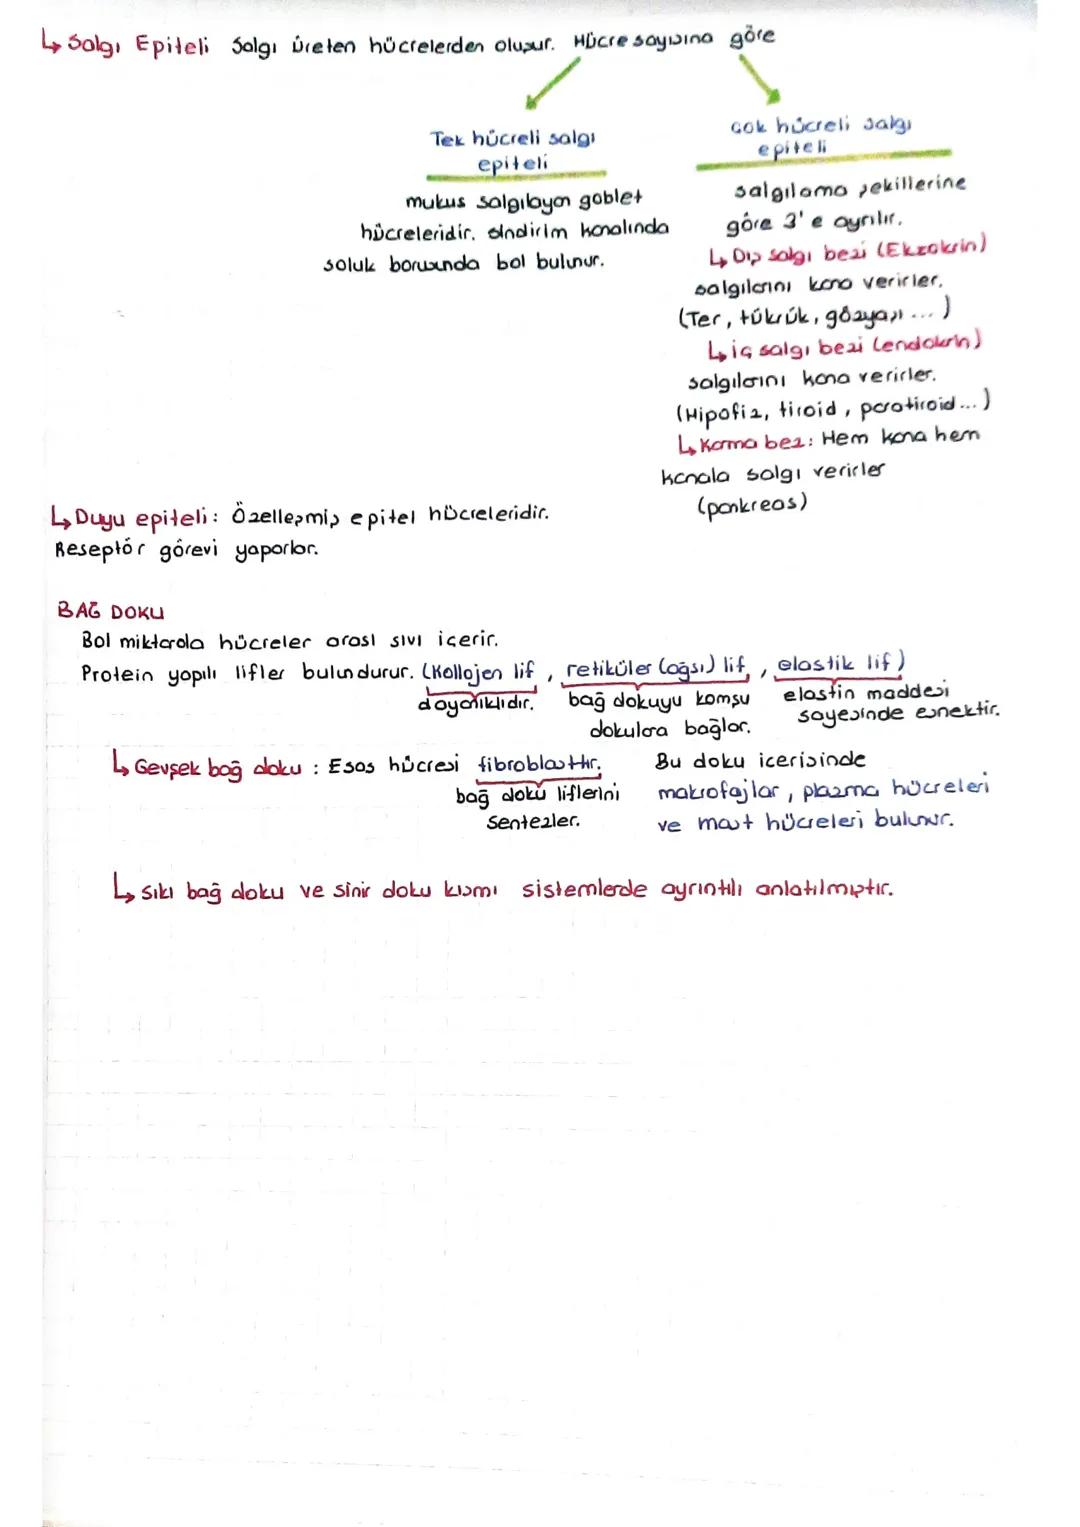 ↳ Salgı Epiteli Salgı üreten hücrelerden oluşur. Hücre sayısına göre
Tek hücreli salgı
epiteli
mukus salgılayan goblet
hücreleridir. sindirim kanalında
soluk borusunda bol bulunur.
Çok hücreli salgı
epiteli
salgılama şekillerine
göre 3'e ayrılır.
↳ Dış salgı bezi (Ekzokrin)
salgılarını kana verirler.
(Ter, tükrük, gözyaşı ... )
↳ iç salgı bezi (endokrin)
salgılarını kana verirler.
(Hipofiz, tiroid, paratiroid ... )
↳ Karma bez: Hem kana hem
kanala salgı verirler
(pankreas)
↳ Duyu epiteli: Özelleşmiş epitel hücreleridir.
Reseptör görevi yaparlar.
BAĞ DOKU
Bol miktarda hücreler arası sıvı içerir.
Protein yapılı lifler bulundurur. (Kollojen lif, retiküler (ağsı) lif, elastik lif)
dayanıklıdır.
bağ dokuyu komşu
dokulara bağlar.
elastin maddesi
sayesinde esnektir.
↳ Gevşek bağ doku : Esas hücresi fibroblasttır.
bağ doku liflerini
sentezler.
Bu doku icerisinde
makrofajlar, plazma hücreleri
ve mast hücreleri bulunur.
↳ sıkı bağ doku ve sinir doku kısmı sistemlerde ayrıntılı anlatılmıştır.